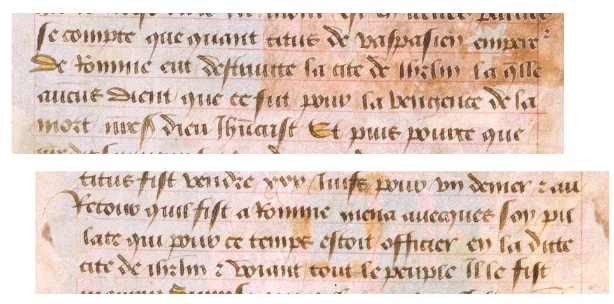 se compte que quant titus de vaspasien emper
de Romme eut destruitte la cite de ihrlm la qlle
aucus dient que ce fut pour la vengence de la
mort dieu Et puis pource que
titus fist vendre xxx Juifs pour vn denier z au
Retour quil fist a Romme mena auecques soy pil
late qui pour ce temps estoit officier en la ditte
cite de ihrlm z voiant tout le peuple Il le fist